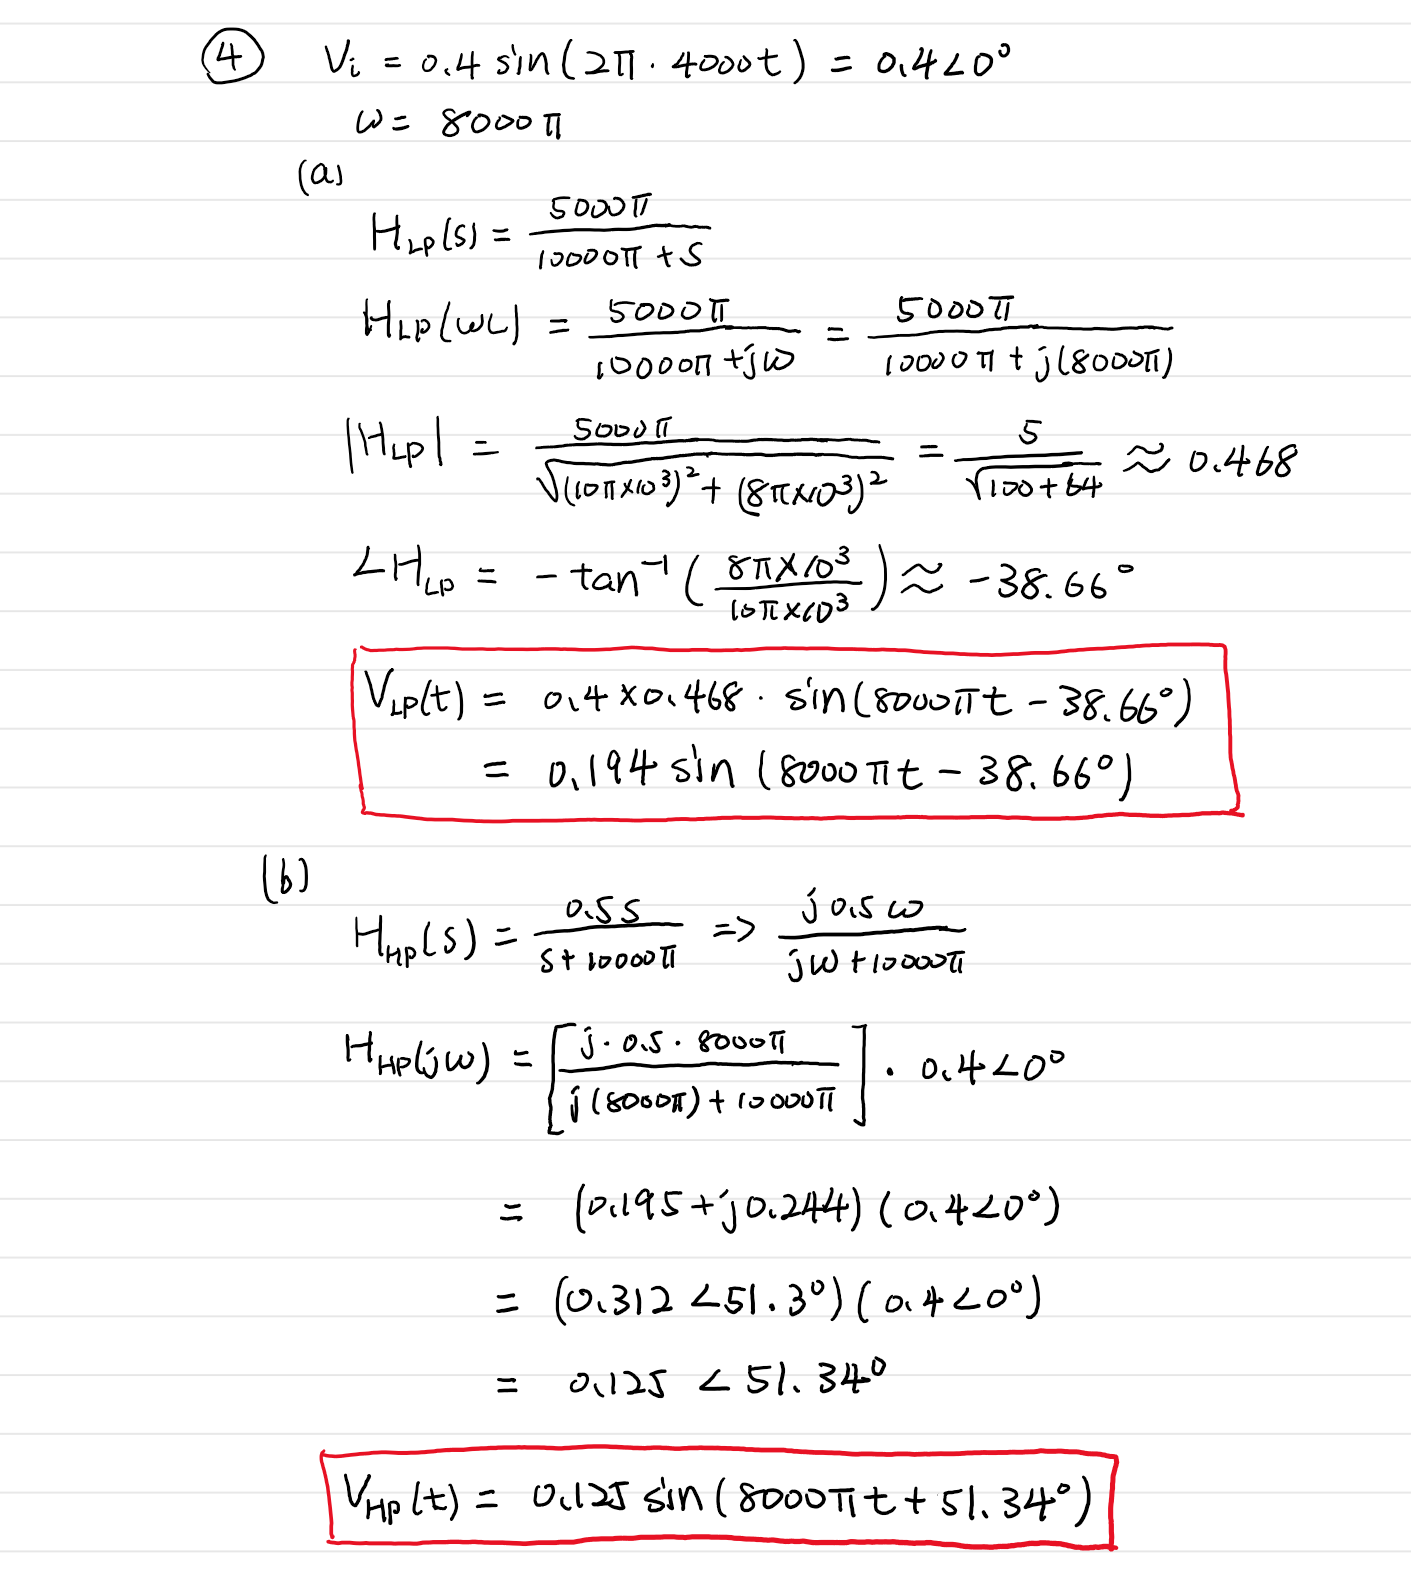 ④ Vi = 0.4 sin(2π · 4000t) = 0.4∠0°
ω = 8000π
(a)
H_LP(s) = 5000π / (10000π + s)
H_LP(ωL) = 5000π / (10000π + jω) = 5000π / (10000π + j(8000π))
|H_LP| = 5000π / √((10π×10³)² + (8π×10³)²) = 5 / √(100+64) ≈ 0.468
∠H_LP = -tan⁻¹(8π×10³ / 10π×10³) ≈ -38.66°
V_LP(t) = 0.4×0.468 · sin(8000πt - 38.66°)
= 0.194 sin(8000πt - 38.66°)
(b)
H_HP(s) = 0.5s / (s + 10000π) => j0.5ω / (jω + 10000π)
H_HP(jω) = [j · 0.5 · 8000π / (j(8000π) + 10000π)] · 0.4∠0°
= (0.195 + j0.244)(0.4∠0°)
= (0.312∠51.3°)(0.4∠0°)
= 0.125 ∠51.34°
V_HP(t) = 0.125 sin(8000πt + 51.34°)